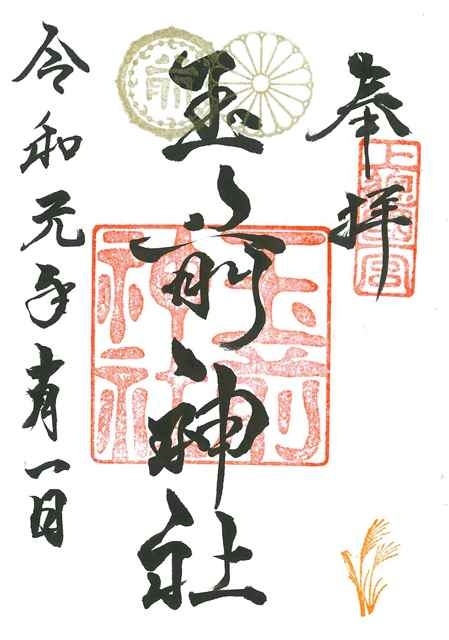 奉拝
上總一宮
玉前神社
玉前
神社
令和元年十月一日